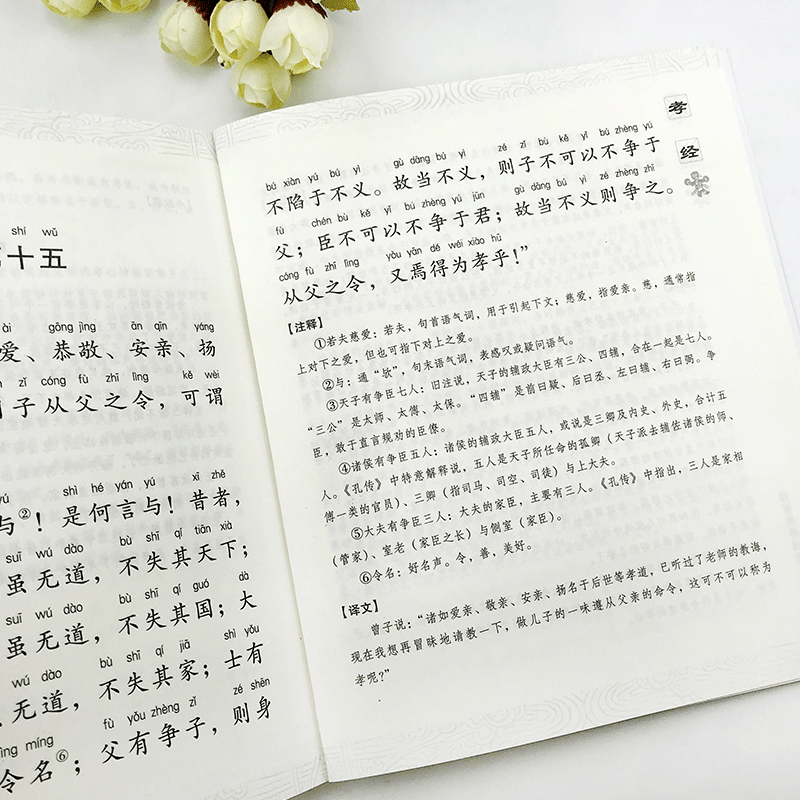 shí wǔ
十五
ài gōng jìng ān qīn yáng
爱、恭敬、安亲、扬
zǐ cóng fù zhī lìng kě wèi
子从父之令，可谓
yú shì hé yán yú xī zhě
与②！是何言与！昔者，
suī wú dào bù shī qí tiān xià
虽无道，不失其天下；
suī wú dào bù shī qí guó dà
虽无道，不失其国；大
wú dào bù shī qí jiā shì yǒu
无道，不失其家；士有
lìng míng fù yǒu zhèng zǐ zé shēn
令名⑥；父有争子，则身
孝经
bú xiàn yú bú yì gù dāng bú yì zé zǐ bù kě yǐ bú zhèng yú
不陷于不义。故当不义，则子不可以不争于
fù chén bù kě yǐ bú zhèng yú jūn gù dāng bú yì zé zhèng zhī
父；臣不可以不争于君；故当不义则争之。
cóng fù zhī lìng yòu yān dé wéi xiào hū
从父之令，又焉得为孝乎！”
【注释】
①若夫慈爱：若夫，句首语气词，用于引起下文；慈爱，指爱亲。慈，通常指
上对下之爱，但也可指下对上之爱。
②与：通“欤”，句末语气词，表感叹或疑问语气。
③天子有争臣七人：旧注说，天子的辅政大臣有三公、四辅，合在一起是七人。
“三公”是太师、太傅、太保。“四辅”是前曰疑、后曰丞、左曰辅、右曰弼。争
臣，敢于直言规劝的臣僚。
④诸侯有争臣五人：诸侯的辅政大臣五人，或说是三卿及内史、外史，合计五
人。《孔传》中特意解释说，五人是天子所任命的孤卿（天子派去辅佐诸侯的师、
傅一类的官员）、三卿（指司马、司空、司徒）与上大夫。
⑤大夫有争臣三人：大夫的家臣，主要有三人。《孔传》中指出，三人是家相
（管家）、室老（家臣之长）与侧室（家臣）。
⑥令名：好名声。令，善，美好。
【译文】
曾子说：“诸如爱亲、敬亲、安亲、扬名于后世等孝道，已听过了老师的教诲，
现在我想再冒昧地请教一下，做儿子的一味遵从父亲的命令，这可不可以称为
孝呢？”